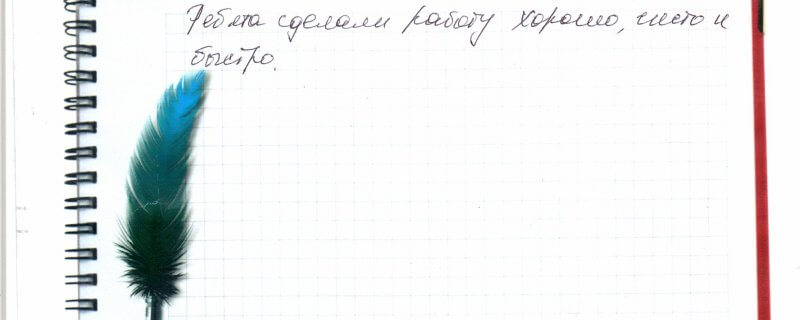 Ребята сделали работу хорошо, чисто и
быстро.